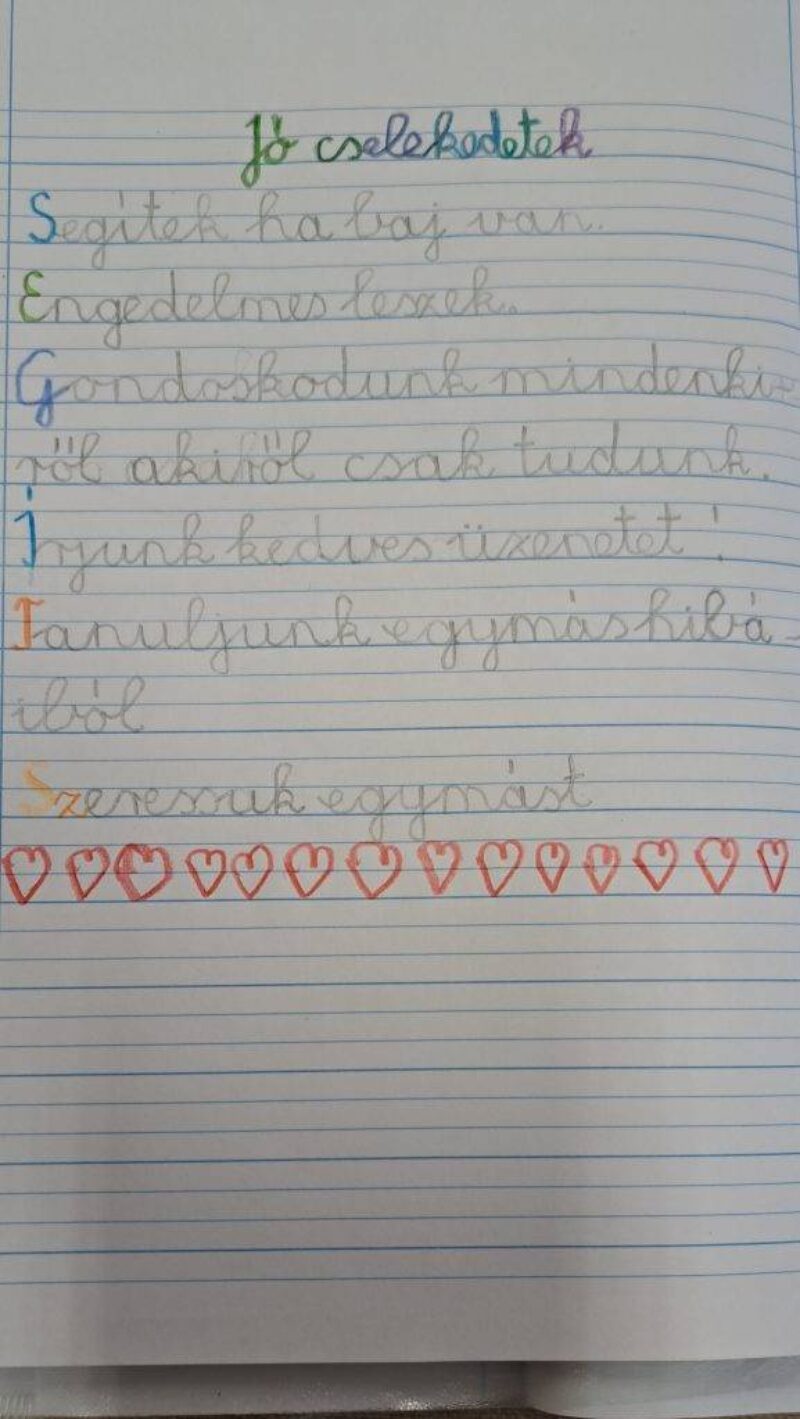 Jó cselekedetek
Segítek ha baj van.
Engedelmes leszek.
Gondoskodunk mindenki-
ről akiről csak tudunk.
Írjunk kedves üzenetet!
Tanuljunk egymás hibá-
iból
Szeressuk egymást